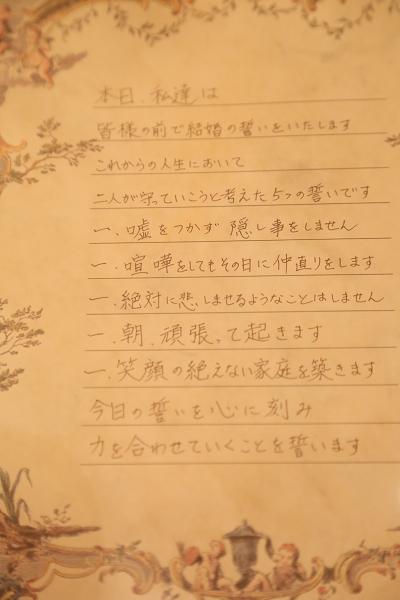 本日、私達は
皆様の前で結婚の誓いをいたします
これからの人生において
二人が守っていこうと考えた5つの誓いです
一、嘘をつかず隠し事をしません
一、喧嘩をしてもその日に仲直りをします
一、絶対に悲しませるようなことはしません
一、朝、頑張って起きます
一、笑顔の絶えない家庭を築きます
今日の誓いを心に刻み
力を合わせていくことを誓います